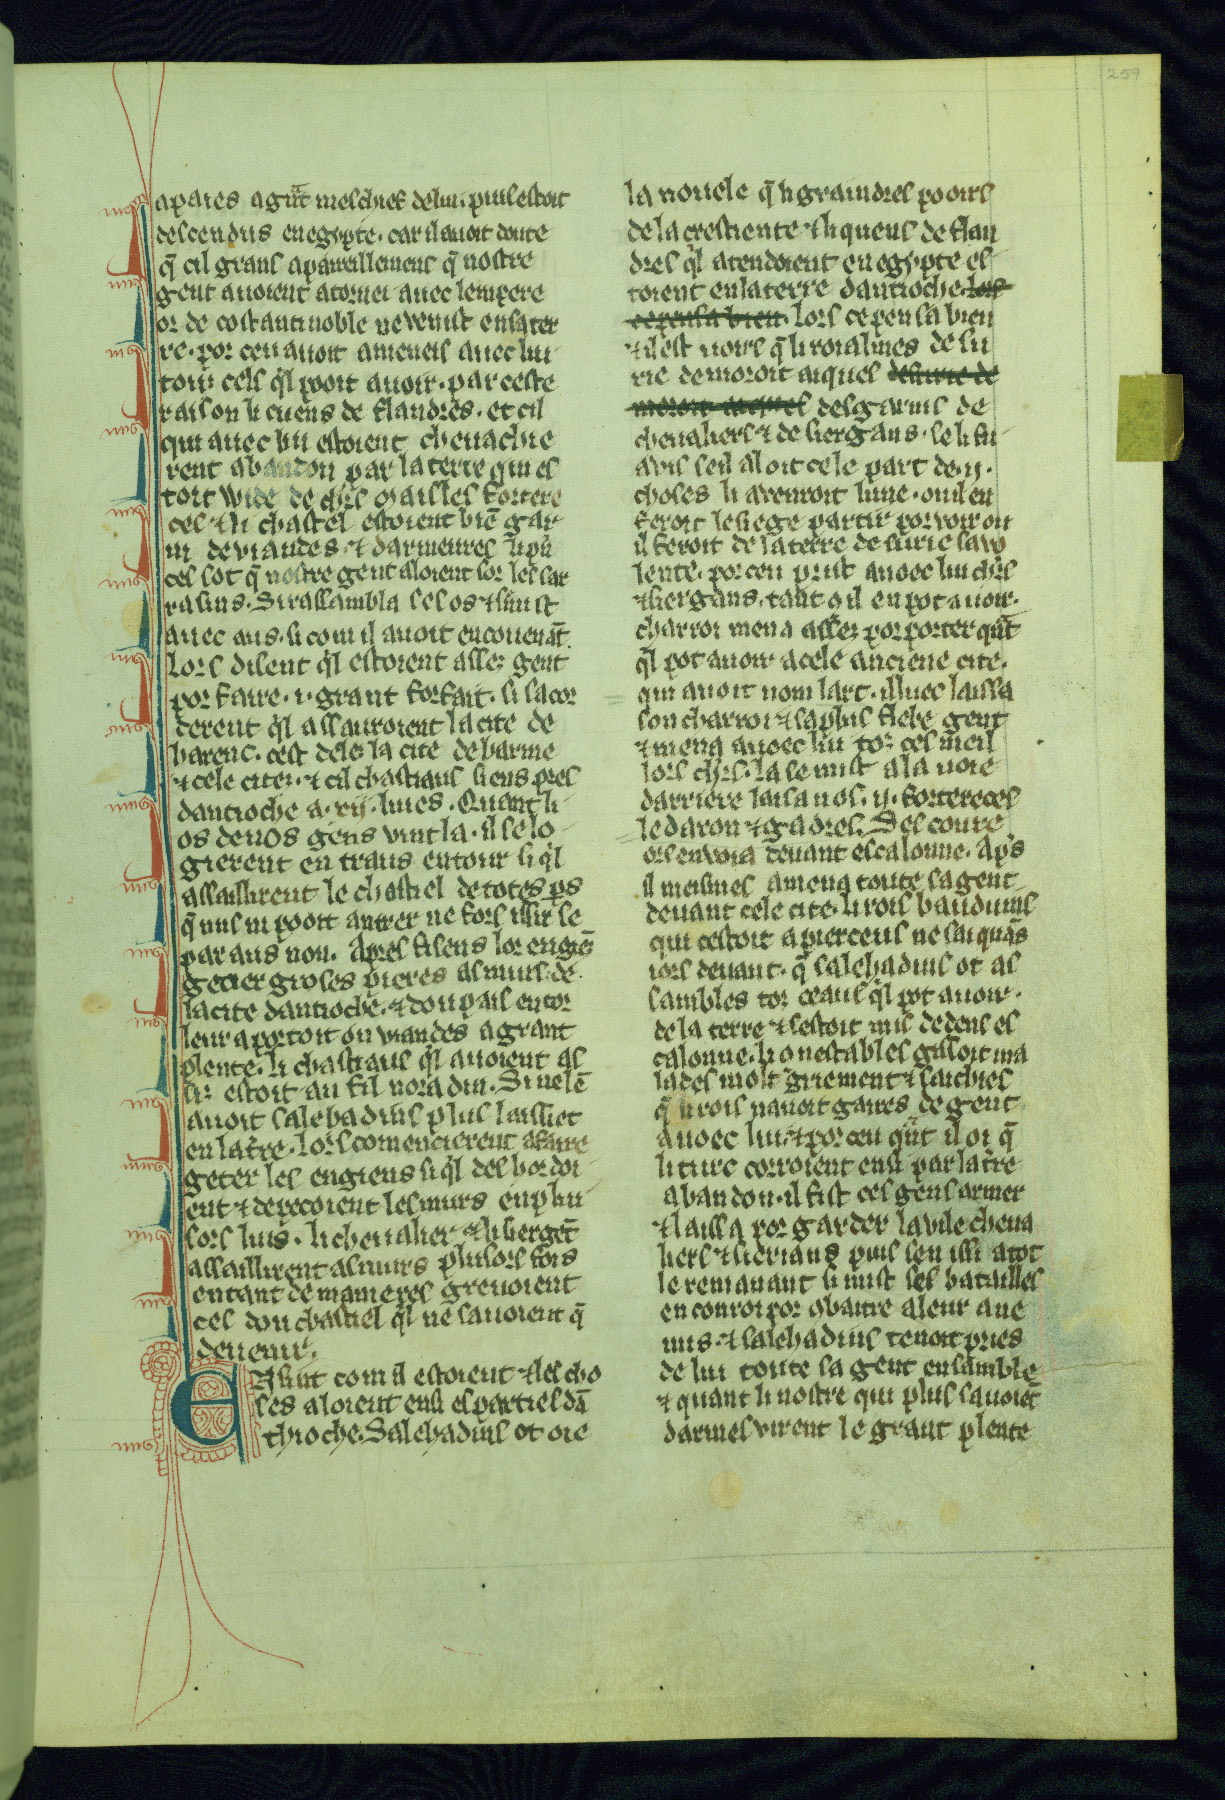 259
apaies agͬnt meschies de lui. puis estoit
descendus en egypte. car il auoit doute
q̄ cil grans apareillemens q̄ nostre
gent auoient atornei auec lempere
or de costantinoble ne venist en sa ter
re. por ceu auoit ameneis auec lui
toz cels q̓l pooit auoir. par ceste
raison li cuens de flandres. et cil
qui auec lui estoient cheuachie
rent abandon par la terre qui es
toit wide de chr̄s mais les fortere
ces ⁊ li chastel estoient biē gar
ni de viandes. ⁊ darmeures li pͥn
ces sot q̄ nostre gent aloient sor les sar
rasins. Si rassambla ses os ⁊ sinist
auec aus. si com il auoit encouenāt.
Lors disent q̓l estoient assez gent
por faire .i. grant forfait. si sacor
derent q̓l assauroient la cite de
harenc. cest deles la cite de harme
⁊ cele citei. ⁊ cil chastiaus siens pres
dantioche a .xij. liues. Quant li
os de nos gens vint la. il se lo
gierent en traus entour si q̓l
assaillirent le chastiel de totes ps
q̄ nus ni pooit antrer ne fors issir se
par aus non. Apres fisens lor engiēs
getier groses pieres as murs. de
la cite dantioche. ⁊ dou pais entor
leur aportoit on viandes a grant
plente. li chastiaus q̓l auoient as
sis estoit au fil noradin. Si nelē
auoit salehadins plus laissiet
en la tͬre. lors comencierent afaire
geter les engiens si q̓l des bordoi
ent ⁊ depecoient les murs en plu
sors luis. li cheualier ⁊ li sergēt
assaillirent as murs plusors fois
en tant de manieres greuoient
ces dou chastiel q̓l ne sauoient q̄
deuenir.
Ensint com il estoient ⁊ les cho
ses aloient ensi es parties dā
thioche. Salehadins ot oie
la nouele q̄ li graindres pooirs
de la crestiente ⁊ li queus de flan
dres q̓l atendoient en egypte es
toient en la terre dantioche. lors
ce pensa bien. lors ce pensa bien
⁊ il est voirs q̄ li roialmes de su
rie demoroit aiques de surie de
moroit aiques desgarnis de
cheualiers ⁊ de sergans. se li fu
auis seil aloit cele part de .ij.
choses li auenroit lune. ou il en
feroit le siege partir por voir ou
il feroit de la terre de surie sa vo
lente. por ceu prist auoec lui chr̄s
⁊ sergans. tant q̓ il en pot auoir.
charroi mena assez por porter qͣnt
q̓l pot auoir a cele anciene cite.
qui auoit nom lart. illuec laissa
son charroi ⁊ sa plus fiebe gent
⁊ mena auoec lui toz ces meil
lors chr̄s. la se mist a la uoie
darriere laisa nos .ij. fortereces
le daron ⁊ gadres. Ses coure
ors enuoia deuant escalonne. Apͤs
il meismes amena toute sa gent
deuant cele cite. li rois bauduins
qui cestoit apierceus ne sai quās
iors deuant. q̄ salehadins ot as
sambles toz ceaus q̓l pot auoir.
de la terre ⁊ sestoit mis dedens es
calonne. li conestables gisoit ma
lades molt griement ⁊ saichies
q̄ li rois nauoit gaires de gent
auoec lui. ⁊ por ceu qͣnt il oi q̄
li turc corroient ensi par la tͬre
abandon. il fist ces gens armer
⁊ laissa por garder la vile cheua
liers ⁊ serians puis sen issi atot
le remanant si mist ses batailles
en conroi por abatre a leur ane
mis. ⁊ salehadins tenoit pries
de lui toute sa gent ensamble
⁊ quant li nostre qui plus sauoiēt
darmes virent le grant plente